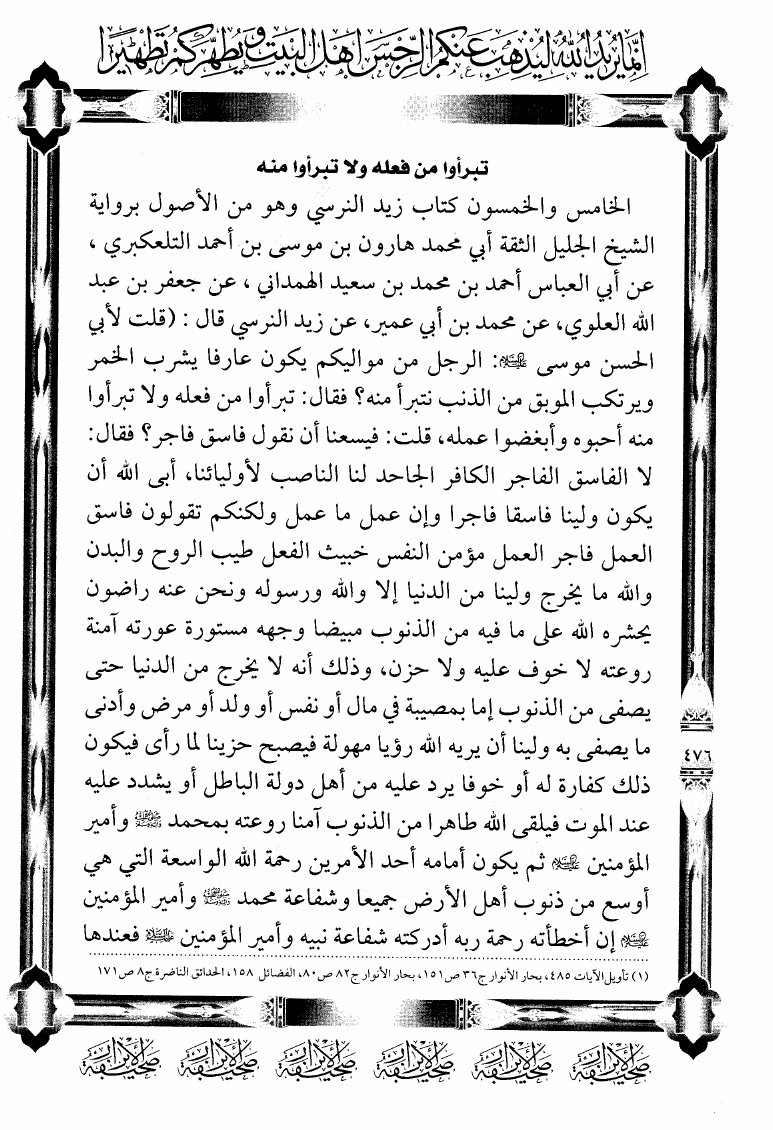 إنما يريد الله ليذهب عنكم الرجس أهل البيت ويطهركم تطهيرا
تبرأوا من فعله ولا تبرأوا منه
الخامس والخمسون كتاب زيد النرسي وهو من الأصول برواية
الشيخ الجليل الثقة أبي محمد هارون بن موسى بن أحمد التلعكبري ،
عن أبي العباس أحمد بن محمد بن سعيد الهمداني ، عن جعفر بن عبد
الله العلوي، عن محمد بن أبي عمير، عن زيد النرسي قال : (قلت لأبي
الحسن موسى عليه السلام: الرجل من مواليكم يكون عارفا يشرب الخمر
ويرتكب الموبق من الذنب نتبرأ منه؟ فقال: تبرأوا من فعله ولا تبرأوا
منه أحبوه وأبغضوا عمله، قلت: فيسعنا أن نقول فاسق فاجر؟ فقال:
لا الفاسق الفاجر الكافر الجاحد لنا الناصب لأوليائنا، أبى الله أن
يكون ولينا فاسقا فاجرا وإن عمل ما عمل ولكنكم تقولون فاسق
العمل فاجر العمل مؤمن النفس خبيث الفعل طيب الروح والبدن
والله ما يخرج ولينا من الدنيا إلا والله ورسوله ونحن عنه راضون
يحشره الله على ما فيه من الذنوب مبيضا وجهه مستورة عورته آمنة
روعته لا خوف عليه ولا حزن، وذلك أنه لا يخرج من الدنيا حتى
يصفى من الذنوب إما بمصيبة في مال أو نفس أو ولد أو مرض وأدنى
ما يصفى به ولينا أن يريه الله رؤيا مهولة فيصبح حزينا لما رأى فيكون
ذلك كفارة له أو خوفا يرد عليه من أهل دولة الباطل أو يشدد عليه
عند الموت فيلقى الله طاهرا من الذنوب آمنا روعته بمحمد ﷺ وأمير
المؤمنين عليه السلام ثم يكون أمامه أحد الأمرين رحمة الله الواسعة التي هي
أوسع من ذنوب أهل الأرض جميعا وشفاعة محمد ﷺ وأمير المؤمنين
عليه السلام إن أخطأته رحمة ربه أدركته شفاعة نبيه وأمير المؤمنين عليه السلام فعندها
٤٧٦
(١) تأويل الآيات ٤٨٥، بحار الأنوار ج٣٦ ص١٥١، بحار الأنوار ج٨٢ ص٨٠، الفضائل ١٥٨، الحدائق الناضرة ج٨ ص١٧١
صحيفة الأبرار صحيفة الأبرار صحيفة الأبرار صحيفة الأبرار صحيفة الأبرار صحيفة الأبرار